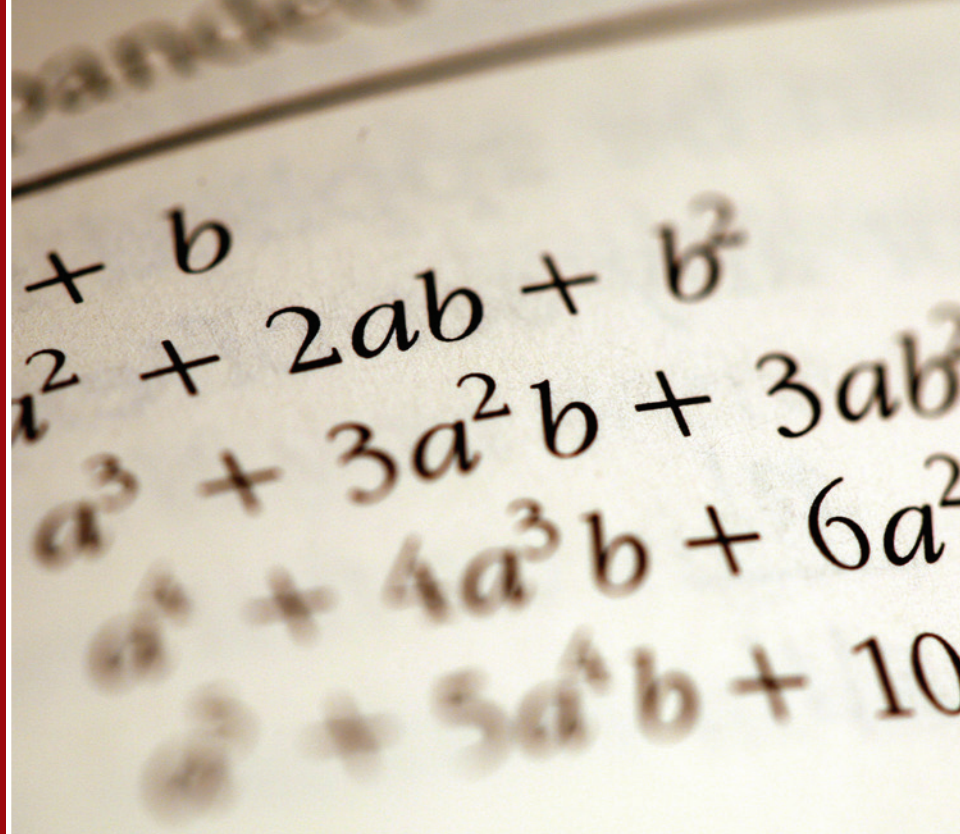 pande
+ b
a² + 2ab + b²
a³ + 3a²b + 3ab²
a⁴ + 4a³b + 6a²
a⁵ + 5a⁴b + 10